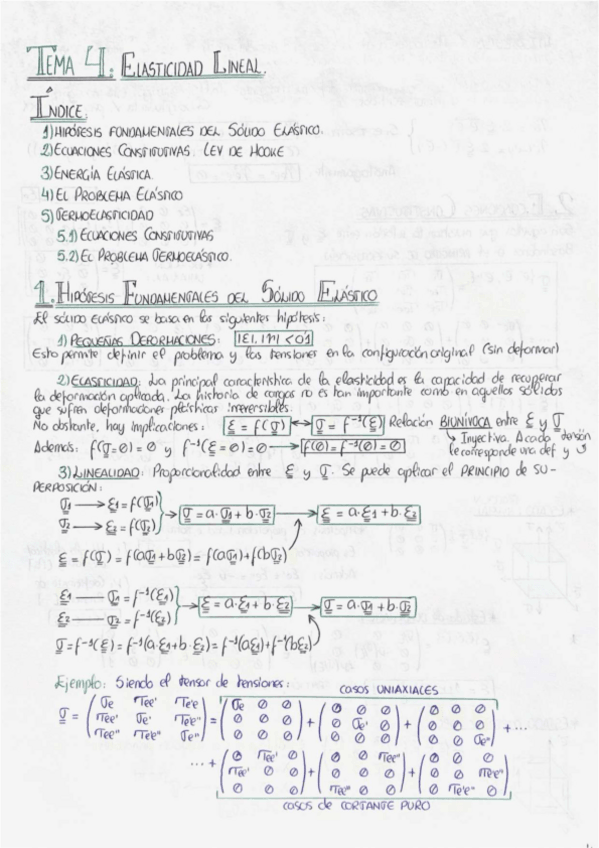 TEMA 4: ELASTICIDAD LINEAL.
ÍNDICE:
1) HIPÓTESIS FUNDAMENTALES DEL SÓLIDO ELÁSTICO.
2) ECUACIONES CONSTITUTIVAS. LEY DE HOOKE
3) ENERGÍA ELÁSTICA.
4) EL PROBLEMA ELÁSTICO
5) TERMOELASTICIDAD
5.1) ECUACIONES CONSTITUTIVAS
5.2) EL PROBLEMA TERMOELÁSTICO.
1. HIPÓTESIS FUNDAMENTALES DEL SÓLIDO ELÁSTICO
El sólido elástico se basa en las siguientes hipótesis:
1) PEQUEÑAS DEFORMACIONES:
Esto permite definir el problema y las tensiones en la configuración original (sin deformar)
2) ELASTICIDAD: La principal característica de la elasticidad es la capacidad de recuperar
la deformación aplicada. La historia de cargas no es tan importante como en aquellos sólidos
que sufren deformaciones plásticas irreversibles.
No obstante, hay implicaciones: ε = f(σ) ↔ σ = f⁻¹(ε) Relación BIUNÍVOCA entre ε y σ
Además: f(σ=0) = 0 y f⁻¹(ε=0) = 0 → f(0) = f⁻¹(0) = 0 ↳ Inyectiva. A cada tensión
le corresponde una def y
3) LINEALIDAD: Proporcionalidad entre ε y σ. Se puede aplicar el PRINCIPIO DE SU-
PERPOSICIÓN:
σ1 → ε1 = f(σ1)
σ2 → ε2 = f(σ2) } → σ = a·σ1 + b·σ2 → ε = a·ε1 + b·ε2
ε = f(σ) = f(aσ1 + bσ2) = f(aσ1) + f(bσ2)
ε1 → σ1 = f⁻¹(ε1)
ε2 → σ2 = f⁻¹(ε2) } → ε = a·ε1 + b·ε2 → σ = a·σ1 + b·σ2
σ = f⁻¹(ε) = f⁻¹(a·ε1 + b·ε2) = f⁻¹(aε1) + f⁻¹(bε2)
Ejemplo: Siendo el tensor de tensiones: CASOS UNIAXIALES
CASOS de CORTANTE PURO